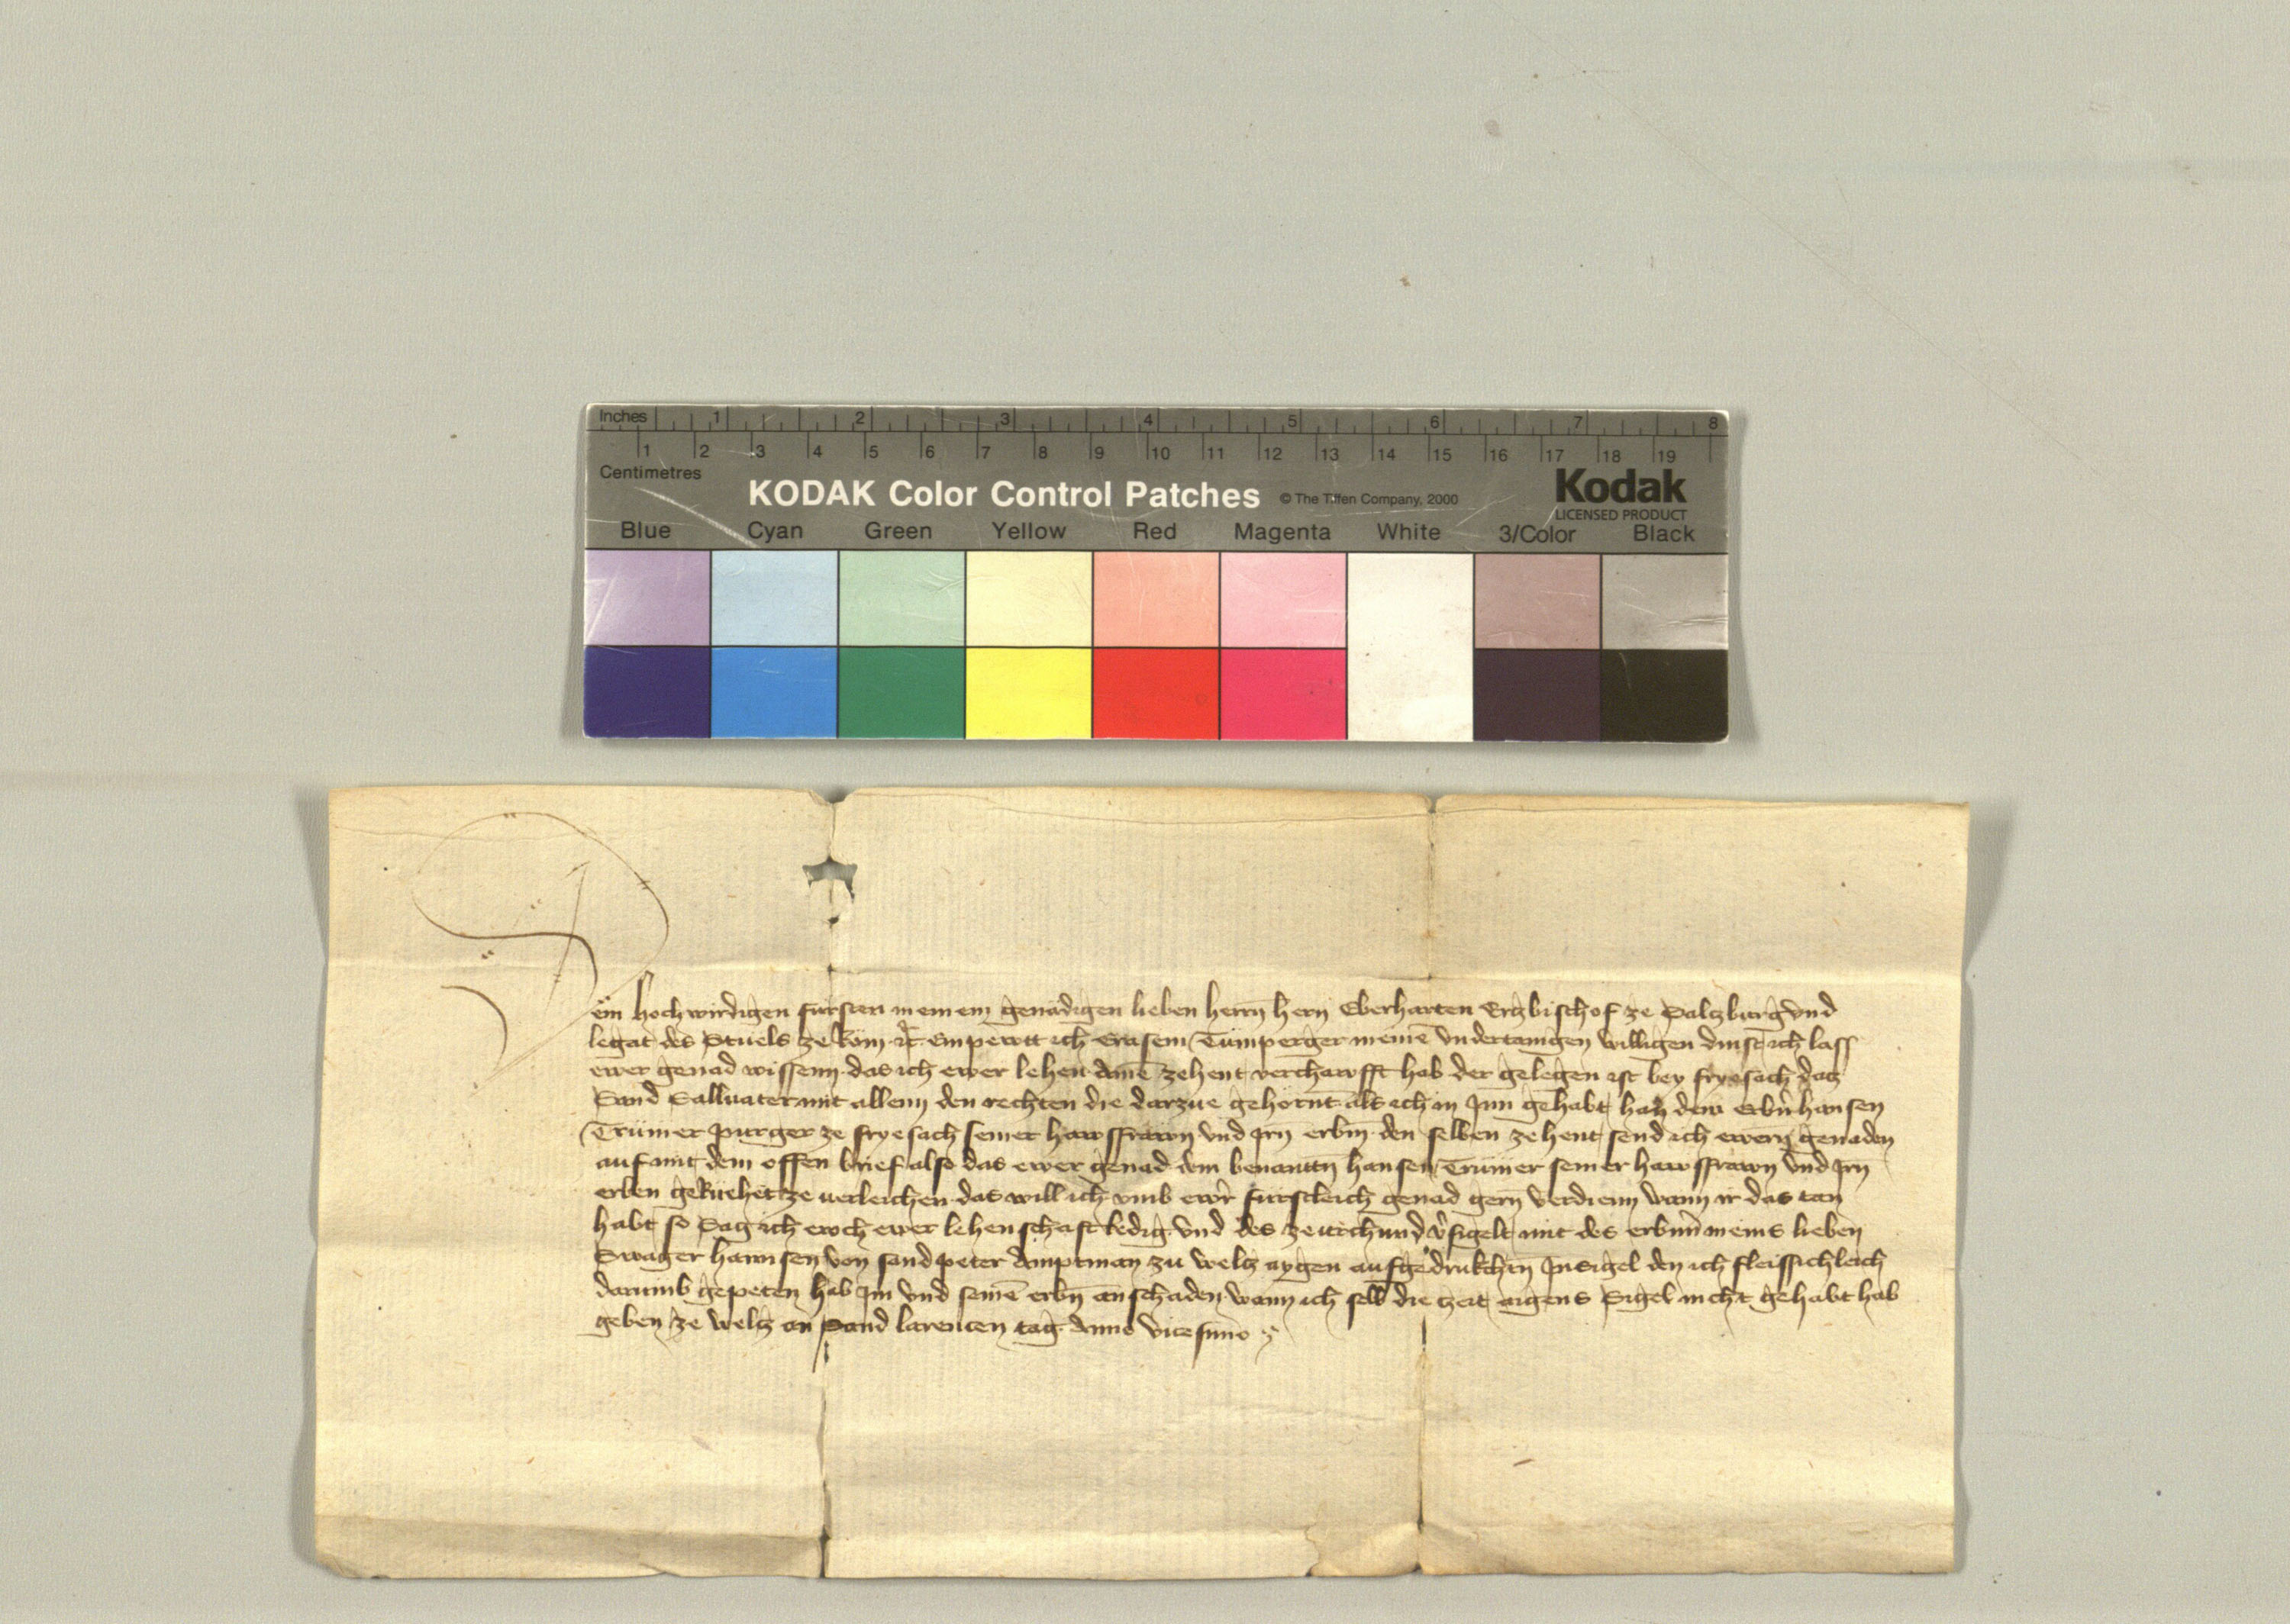 Inches 1 2 3 4 5 6 7 8
1 2 3 4 5 6 7 8 9 10 11 12 13 14 15 16 17 18 19
Centimetres
KODAK Color Control Patches © The Tiffen Company, 2000 Kodak
LICENSED PRODUCT
Blue Cyan Green Yellow Red Magenta White 3/Color Black
Dem hochwirdigen fursten meinem genadigen lieben herrn hern Eberharten Erzbischof ze Salzburg vnd
legat des Stuels ze Rom etc Empewtt ich Erasem Tumperger meinē vndertanigen willigen dinst ich lass
ewer genad wissenn das ich ewer lehen ainē zehent verchawfft hab der gelegen ist bey fryesach daz
Sand Saluater mit allenn den rechten die darzue gehornt als ich in Inn gehabt hab dem Erbn̄ hansen
Trumer purger ze fryesach seiner hawsfrawn vnd Irn̄ erbm den selben zehent send ich ewern genaden
auf mit dem offen brief also das ewer genad dem benantn̄ hansen Trumer seiner hawsfrawn vnd Irn̄
erben geruehet ze verleichen das will ich vmb ewr̄ furstleich genad gern̄ verdienn wann ir das tan
habt so Sag ich ewch ewer lehenschaft ledig vnd des ze vrchund v̄sigelt mit des erbmn̄ meins lieben
Swager hannsen von sand peter Amptman zu welcz aygen aufgedrukchtn̄ Insigel den ich fleissichleich
darumb gepeten hab Im vnd seinē erbn̄ an schaden wann ich selb die zeit aigens Sigel nicht gehabt hab
geben ze welcz an Sand larencen tag Anno vicesimo